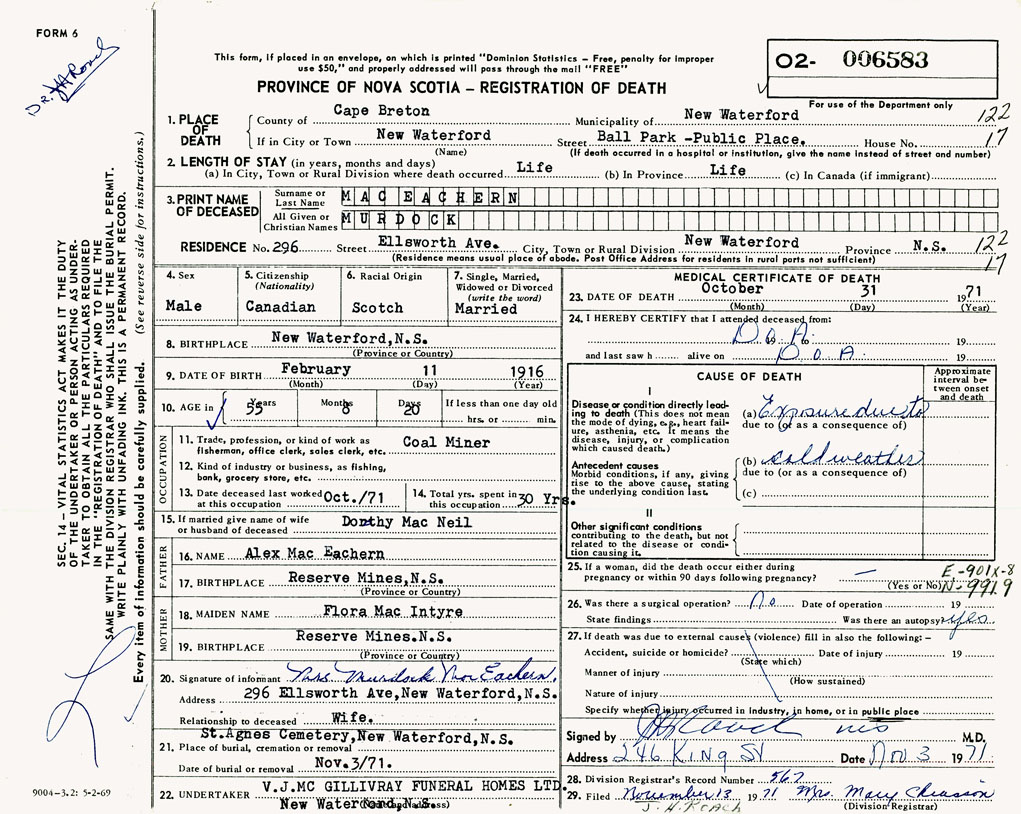 FORM 6
Dr. JH Roach
This form, if placed in an envelope, on which is printed "Dominion Statistics – Free, penalty for improper
use $50," and properly addressed will pass through the mail "FREE"
O2- 006583
For use of the Department only
PROVINCE OF NOVA SCOTIA – REGISTRATION OF DEATH
1. PLACE OF DEATH
County of Cape Breton Municipality of New Waterford 122
If in City or Town New Waterford Street Ball Park -Public Place. House No. 17
(Name) (If death occurred in a hospital or institution, give the name instead of street and number)
2. LENGTH OF STAY (in years, months and days)
(a) In City, Town or Rural Division where death occurred Life (b) In Province Life (c) In Canada (if immigrant)
3. PRINT NAME OF DECEASED
Surname or Last Name MAC EACHERN
All Given or Christian Names MURDOCK
RESIDENCE No. 296 Street Ellsworth Ave. City, Town or Rural Division New Waterford Province N.S. 122
(Residence means usual place of abode. Post Office Address for residents in rural parts not sufficient) 17
4. Sex
Male
5. Citizenship
(Nationality)
Canadian
6. Racial Origin
Scotch
7. Single, Married,
Widowed or Divorced
(write the word)
Married
8. BIRTHPLACE New Waterford,N.S.
(Province or Country)
9. DATE OF BIRTH February 11 1916
(Month) (Day) (Year)
10. AGE in Years 55 Months 8 Days 20 If less than one day old
hrs. or min.
OCCUPATION
11. Trade, profession, or kind of work as
fisherman, office clerk, sales clerk, etc. Coal Miner
12. Kind of industry or business, as fishing,
bank, grocery store, etc.
13. Date deceased last worked
at this occupation Oct./71
14. Total yrs. spent in
this occupation 30 Yrs.
15. If married give name of wife
or husband of deceased Dorthy Mac Neil
FATHER
16. NAME Alex Mac Eachern
17. BIRTHPLACE Reserve Mines,N.S.
(Province or Country)
MOTHER
18. MAIDEN NAME Flora Mac Intyre
19. BIRTHPLACE Reserve Mines.N.S.
(Province or Country)
20. Signature of informant Mrs. Murdock MacEachern.
Address 296 Ellsworth Ave,New Waterford,N.S.
Relationship to deceased Wife.
St.Agnes Cemetery,New Waterford,N.S.
21. Place of burial, cremation or removal
Date of burial or removal Nov.3/71.
22. UNDERTAKER V.J.MC GILLIVRAY FUNERAL HOMES LTD.
New Waterford,N.S.
MEDICAL CERTIFICATE OF DEATH
23. DATE OF DEATH October 31 1971
(Month) (Day) (Year)
24. I HEREBY CERTIFY that I attended deceased from:
D.O.A. to 19
and last saw h alive on D.O.A. 19
CAUSE OF DEATH
Approximate interval between onset and death
I
Disease or condition directly leading to death (This does not mean the mode of dying, e.g., heart failure, asthenia, etc. It means the disease, injury, or complication which caused death.)
(a) Exposure due to
due to (or as a consequence of)
Antecedent causes
Morbid conditions, if any, giving rise to the above cause, stating the underlying condition last.
(b) cold weather
due to (or as a consequence of)
(c)
II
Other significant conditions
contributing to the death, but not related to the disease or condition causing it.
25. If a woman, did the death occur either during
pregnancy or within 90 days following pregnancy? —
(Yes or No)
E-901X-8
N-9919
26. Was there a surgical operation? no Date of operation 19
State findings Was there an autopsy? yes
27. If death was due to external causes (violence) fill in also the following: –
Accident, suicide or homicide? Date of injury 19
(State which)
Manner of injury
(How sustained)
Nature of injury
Specify whether injury occurred in industry, in home, or in public place
Signed by JH Roach M.D.
Address 246 King St Date Nov 3 1971
28. Division Registrar's Record Number 567
29. Filed November 13 1971 Mrs. Mary Chiasson
J. H. Roach (Division Registrar)
SEC. 14 – VITAL STATISTICS ACT MAKES IT THE DUTY
OF THE UNDERTAKER OR PERSON ACTING AS UNDERTAKER
TO OBTAIN ALL THE PARTICULARS REQUIRED
IN THE "REGISTRATION OF DEATH" AND TO FILE THE
SAME WITH THE DIVISION REGISTRAR WHO SHALL ISSUE THE BURIAL PERMIT.
WRITE PLAINLY WITH UNFADING INK. THIS IS A PERMANENT RECORD.
Every item of information should be carefully supplied. (See reverse side for instructions.)
9004-3.2: 5-2-69